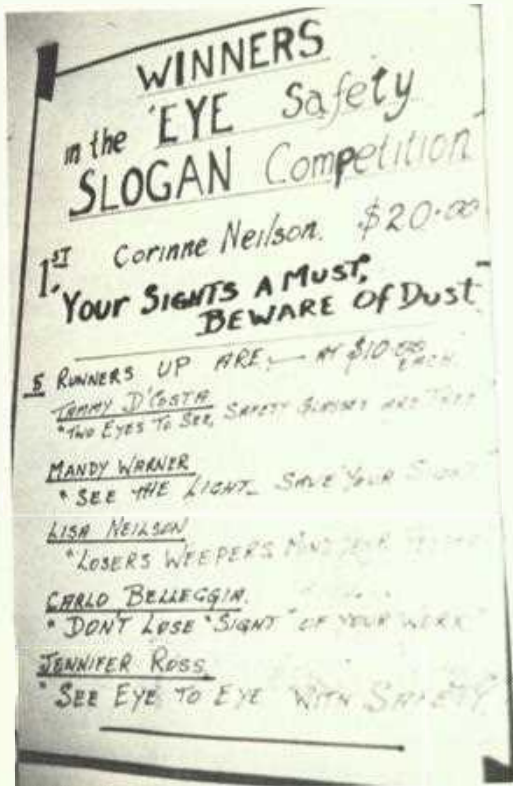 WINNERS
in the 'EYE Safety
SLOGAN Competition
1ST Corinne Neilson. $20.00
"YOUR SIGHTS A MUST,
BEWARE OF DUST
5 RUNNERS UP ARE:— AT $10.00 EACH.
TAMMY D'COSTA
"TWO EYES TO SEE, SAFETY GLASSES ARE
MANDY WARNER
"SEE THE LIGHT_ SAVE YOUR SIGHT
LISA NEILSON
"LOSERS WEEPERS MIND YOUR
CARLO BELLEGGIA.
"DON'T LOSE "SIGHT" OF YOUR WORK"
JENNIFER ROSS
"SEE EYE TO EYE WITH SAFETY.